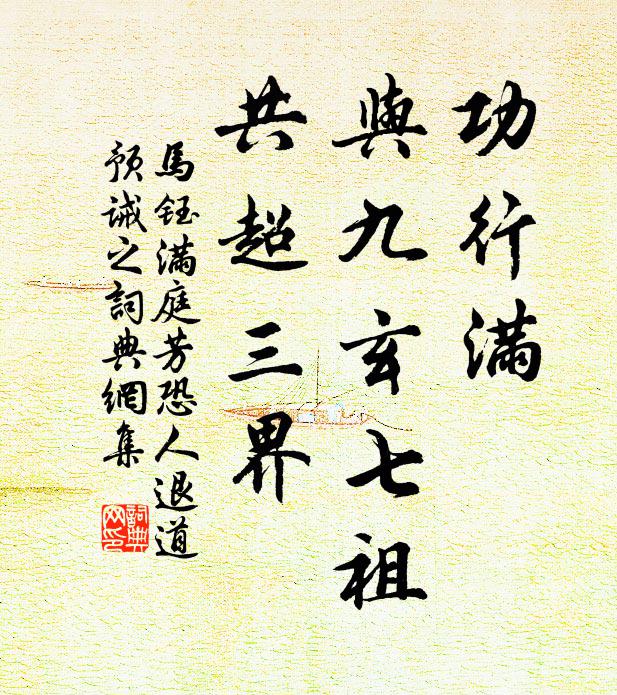 功行滿
與九玄七祖
共超三界
馬鈺滿庭芳恐人退道
預誡之詞典網集
詞典网印